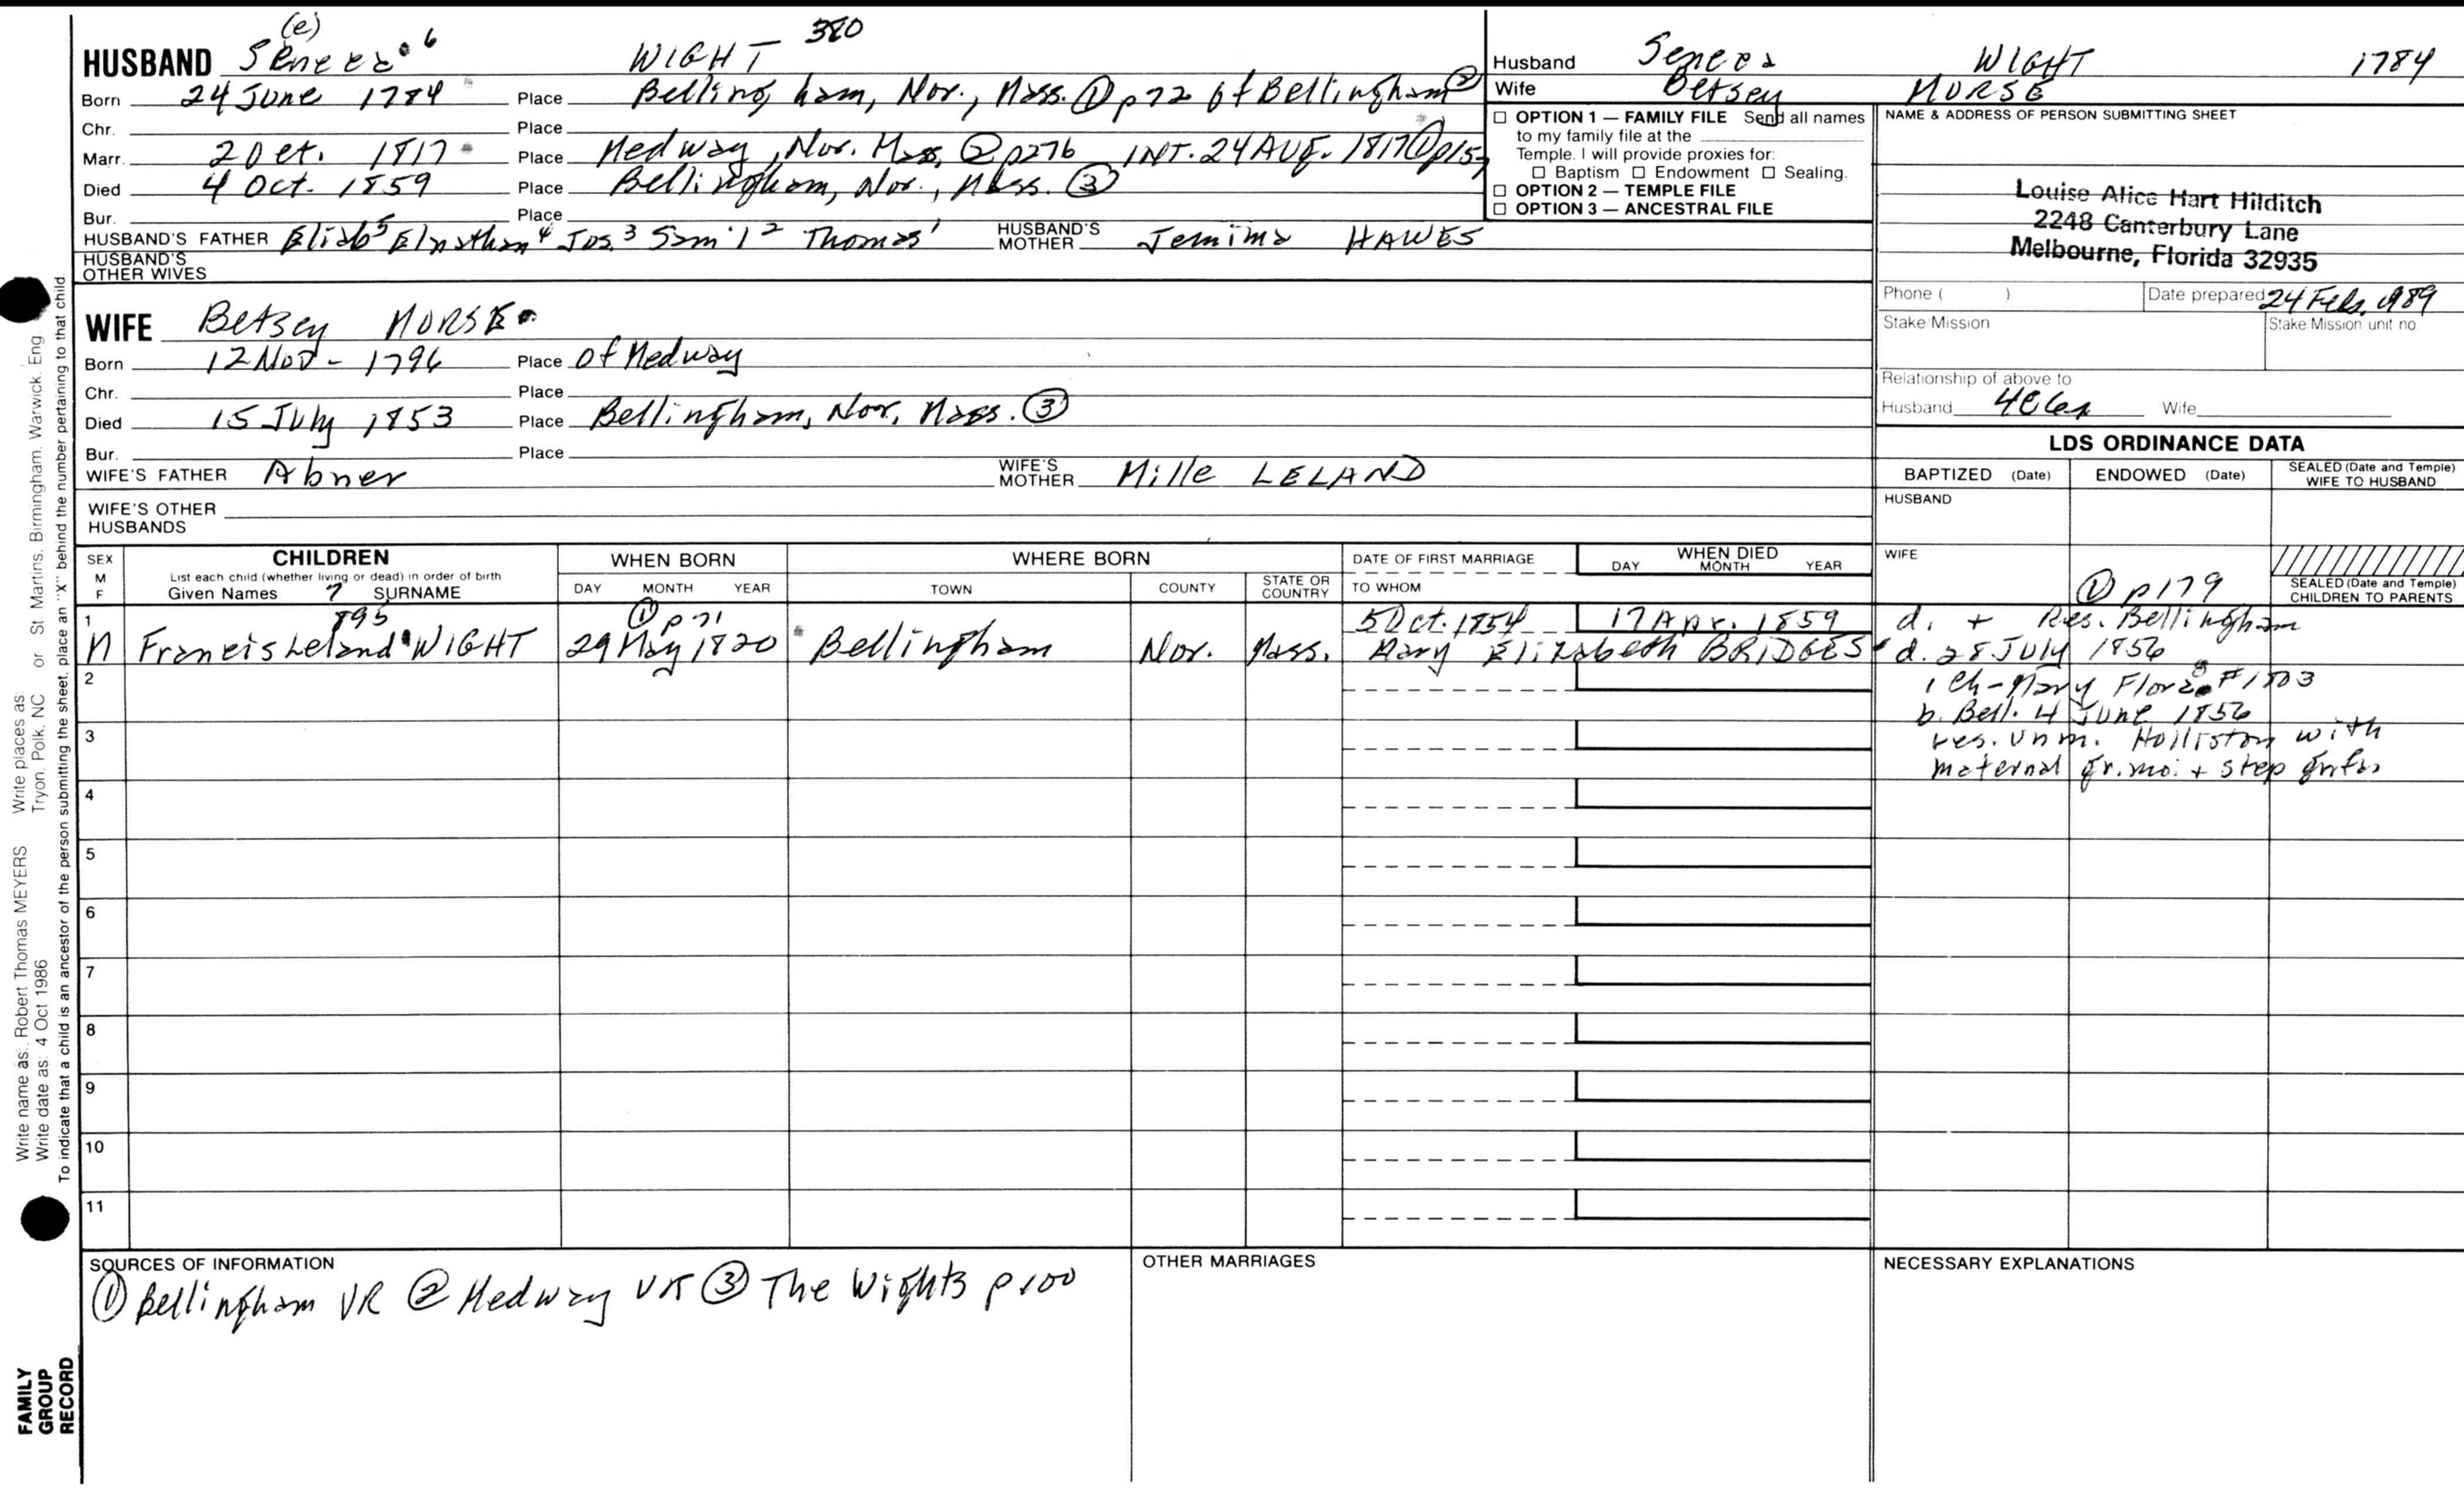 (e)
HUSBAND Seneca 6 WIGHT 380
Born 24 June 1784 Place Bellingham, Nor., Mass. ① p72 of Bellingham ②
Chr. Place
Marr. 2 Oct. 1817 Place Medway, Nor. Mass. ② p276 INT. 24 AUG. 1817 ① p15
Died 4 Oct. 1859 Place Bellingham, Nor., Mass. ③
Bur. Place
HUSBAND'S FATHER Eliab5 Elnathan4 Jos.3 Sam'l2 Thomas1 HUSBAND'S MOTHER Jemima HAWES
HUSBAND'S OTHER WIVES
WIFE Betsey MORSE
Born 12 Nov - 1796 Place of Medway
Chr. Place
Died 15 July 1853 Place Bellingham, Nor, Mass. ③
Bur. Place
WIFE'S FATHER Abner WIFE'S MOTHER Mille LELAND
WIFE'S OTHER HUSBANDS
Husband Seneca WIGHT 1784
Wife Betsey MORSE
☐ OPTION 1 — FAMILY FILE Send all names
to my family file at the
Temple. I will provide proxies for:
☐ Baptism ☐ Endowment ☐ Sealing.
☐ OPTION 2 — TEMPLE FILE
☐ OPTION 3 — ANCESTRAL FILE
NAME & ADDRESS OF PERSON SUBMITTING SHEET
Louise Alice Hart Hilditch
2248 Canterbury Lane
Melbourne, Florida 32935
Phone ( ) Date prepared 24 Feb. 1989
Stake/Mission Stake/Mission unit no.
Relationship of above to
Husband Wife
LDS ORDINANCE DATA
BAPTIZED (Date) ENDOWED (Date) SEALED (Date and Temple) WIFE TO HUSBAND
HUSBAND
WIFE
SEALED (Date and Temple) CHILDREN TO PARENTS
SEX M F
CHILDREN
List each child (whether living or dead) in order of birth
Given Names SURNAME
WHEN BORN
DAY MONTH YEAR
WHERE BORN
TOWN COUNTY STATE OR COUNTRY
DATE OF FIRST MARRIAGE
TO WHOM
WHEN DIED
DAY MONTH YEAR
7
895 ① p71 5 Oct. 1854 17 Apr. 1859
1 M Francis Leland WIGHT 29 May 1820 Bellingham Nor. Mass. Mary Elizabeth BRIDGES
① p179
d. + Res. Bellingham
d. 28 July 1856
1 ch - Mary Flora 8 #1803
b. Bell. 4 June 1856
res. unm. Holliston with
maternal gr.mo. + step grfa
2
3
4
5
6
7
8
9
10
11
SOURCES OF INFORMATION
① Bellingham VR ② Medway VR ③ The Wights p100
OTHER MARRIAGES
NECESSARY EXPLANATIONS
Write name as: Robert Thomas MEYERS Write places as: Tryon, Polk, NC or St. Martins, Birmingham, Warwick, Eng
Write date as: 4 Oct 1986
To indicate that a child is an ancestor of the person submitting the sheet, place an "X" behind the number pertaining to that child.
FAMILY
GROUP
RECORD